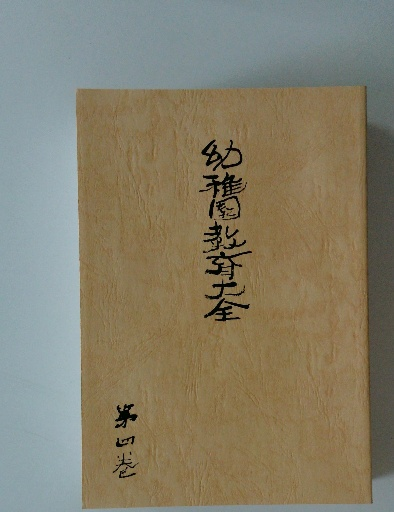 幼稚園教育大全
第四巻